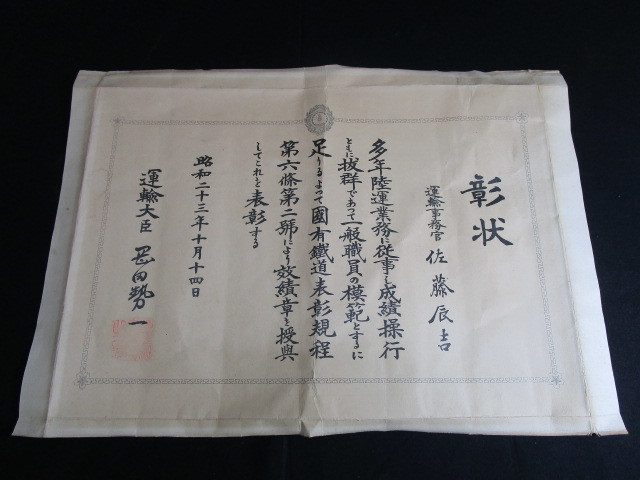 彰状
運輸事務官 佐藤辰吉
多年陸運業務に従事し成績操行
ともに抜群であつて一般職員の模範とするに
足りるよつて國有鐵道表彰規程
第六條第二號により效績章を授與
してこれを表彰する
昭和二十三年十月十四日
運輸大臣 岡田勢一